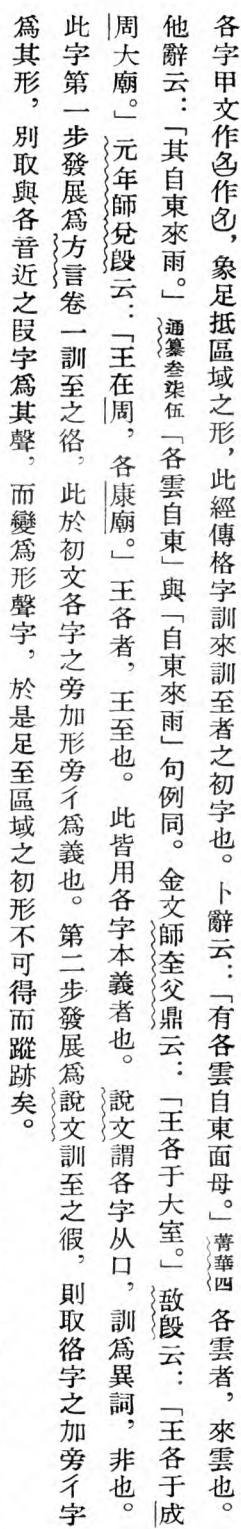 各字甲文作𠙵作，象足抵區域之形，此經傳格字訓來訓至者之初字也。卜辭云：「有各雲自東面母。」菁華四 各雲者，來雲也。
他辭云：「其自東來雨。」通纂叁柒伍 「各雲自東」與「自東來雨」句例同。金文師㚅父鼎云：「王各于大室。」敔𣪘云：「王各于成
周大廟。」元年師兌𣪘云：「王在周，各康廟。」王各者，王至也。此皆用各字本義者也。說文謂各字从口，訓爲異詞，非也。
此字第一步發展爲方言卷一訓至之𢓜，此於初文各字之旁加形旁彳爲義也。第二步發展爲說文訓至之徦，則取𢓜字之加旁彳字
爲其形，別取與各音近之叚字爲其聲，而變爲形聲字，於是足至區域之初形不可得而蹤跡矣。